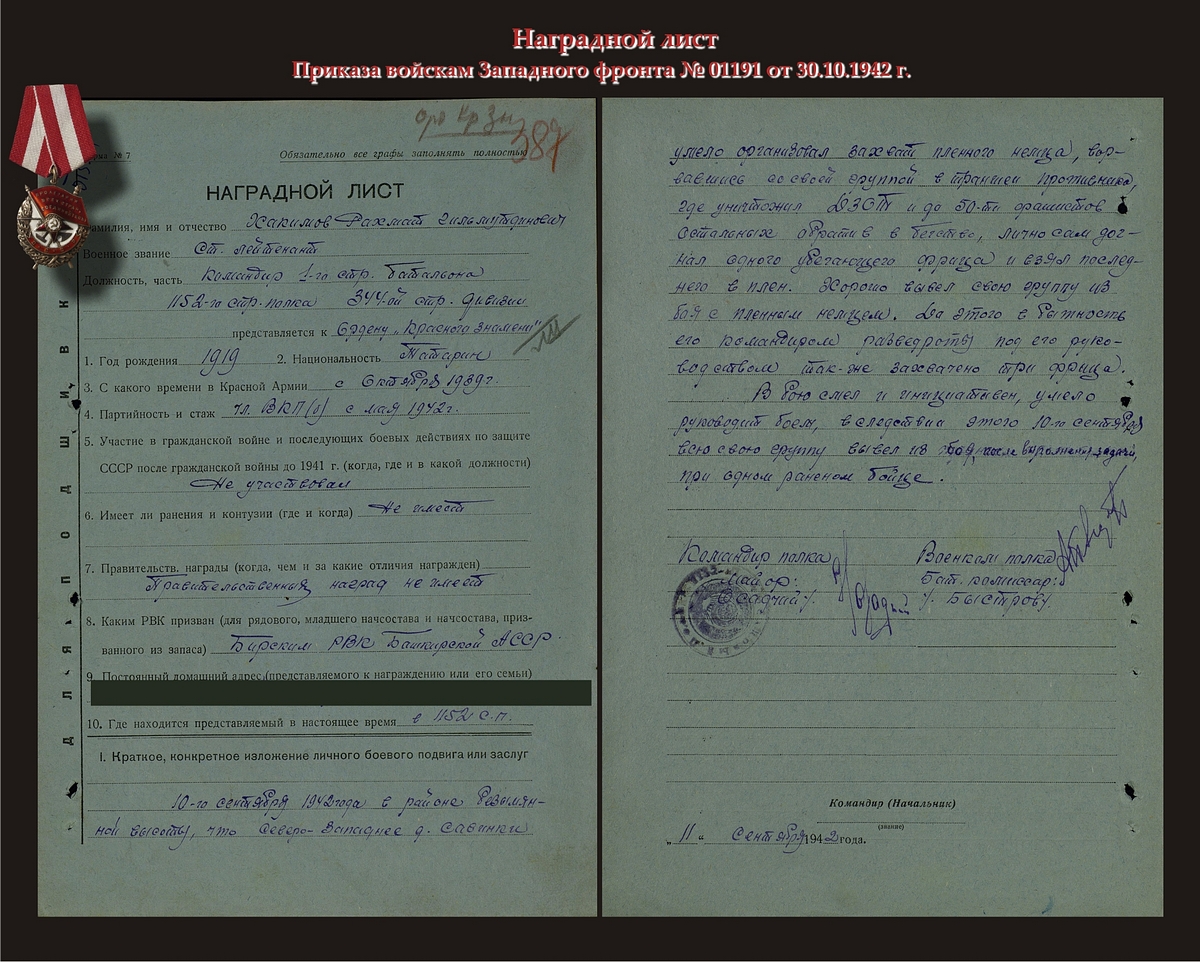 Наградной лист
Приказа войскам Западного фронта № 01191 от 30.10.1942 г.
орд Кр Зн
387
№ 7
Обязательно все графы заполнять полностью
НАГРАДНОЙ ЛИСТ
Фамилия, имя и отчество Хакимов Рахмат Гильмутдинович
Военное звание Ст. лейтенант
Должность, часть Командир 1-го стр. батальона
1152-го стр. полка 344-ой стр. дивизии
представляется к Ордену „Красного знамени"
1. Год рождения 1919 2. Национальность Татарин
3. С какого времени в Красной Армии с октября 1939г.
4. Партийность и стаж чл. ВКП(б) с мая 1942г.
5. Участие в гражданской войне и последующих боевых действиях по защите
СССР после гражданской войны до 1941 г. (когда, где и в какой должности)
Не участвовал
6. Имеет ли ранения и контузии (где и когда) Не имеет
7. Правительств. награды (когда, чем и за какие отличия награжден)
Правительственных наград не имеет
8. Каким РВК призван (для рядового, младшего начсостава и начсостава, приз-
ванного из запаса) Бирским РВК Башкирской АССР.
9. Постоянный домашний адрес (представляемого к награждению или его семьи)
10. Где находится представляемый в настоящее время в 1152 с.п.
I. Краткое, конкретное изложение личного боевого подвига или заслуг
10-го сентября 1942 года в районе Безымян-
ной высоты, что Северо-Западнее д. Савинки
ДЛЯ ПОДШИВКИ
умело организовал захват пленного немца, вор-
вавшись со своей группой в траншеи противника,
где уничтожил ДЗОТ и до 50-ти фашистов
остальных обратив в бегство, лично сам дог-
нал одного убегающего фрица и взял послед-
него в плен. Хорошо вывел свою группу из
боя с пленным немцем. До этого в бытность
его командиром разведроты под его руко-
водством так-же захвачено три фрица.
В бою смел и инициативен, умело
руководит боем, вследствии этого 10-го сентября
всю свою группу вывел из боя, после выполнен. задачи,
при одном раненом бойце.
Командир полка
Майор:
/Осадчий/.
Военком полка
Бат. комиссар:
/ Быстров/.
Командир (Начальник)
(звание)
„11" Сентября 1942 года.